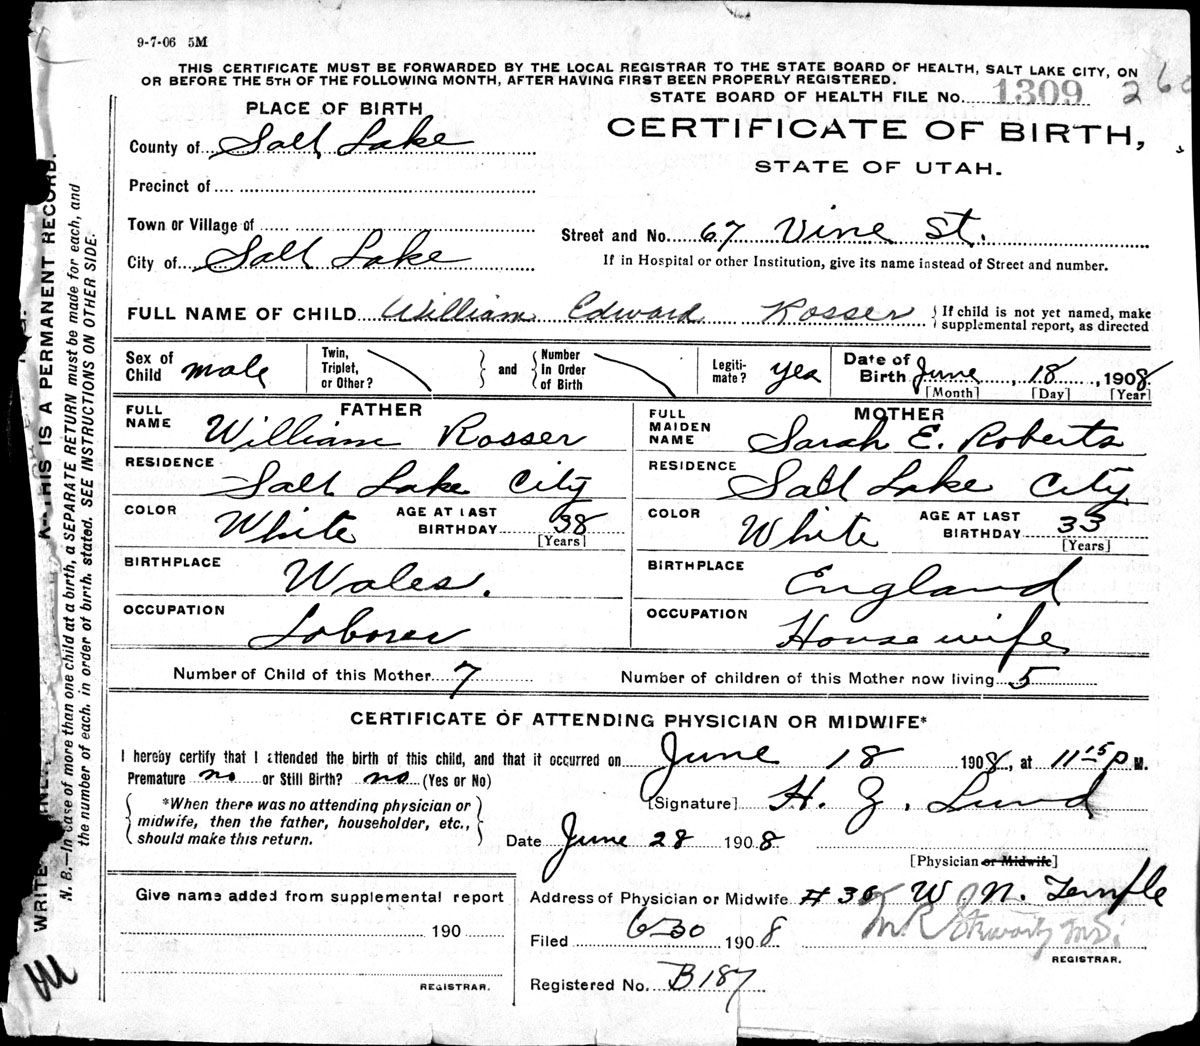 9-7-06 5M
THIS CERTIFICATE MUST BE FORWARDED BY THE LOCAL REGISTRAR TO THE STATE BOARD OF HEALTH, SALT LAKE CITY, ON
OR BEFORE THE 5TH OF THE FOLLOWING MONTH, AFTER HAVING FIRST BEEN PROPERLY REGISTERED.
STATE BOARD OF HEALTH FILE No. 1309
PLACE OF BIRTH
CERTIFICATE OF BIRTH,
STATE OF UTAH.
County of Salt Lake
Precinct of
Town or Village of
City of Salt Lake
Street and No. 67 Vine St.
If in Hospital or other Institution, give its name instead of Street and number.
FULL NAME OF CHILD William Edward Rosser { If child is not yet named, make
supplemental report, as directed
Sex of Child male Twin, Triplet, or Other? } and { Number In Order of Birth Legiti-mate? yes Date of Birth June, 18, 1908
[Month] [Day] [Year]
FATHER
FULL NAME William Rosser
RESIDENCE Salt Lake City
COLOR White AGE AT LAST BIRTHDAY 38 [Years]
BIRTHPLACE Wales.
OCCUPATION Laborer
MOTHER
FULL MAIDEN NAME Sarah E. Roberts
RESIDENCE Salt Lake City
COLOR White AGE AT LAST BIRTHDAY 33 [Years]
BIRTHPLACE England
OCCUPATION House wife
Number of Child of this Mother 7 Number of children of this Mother now living 5
CERTIFICATE OF ATTENDING PHYSICIAN OR MIDWIFE*
I hereby certify that I attended the birth of this child, and that it occurred on June 18 1908, at 11 15 P M.
Premature no or Still Birth? no (Yes or No)
*When there was no attending physician or
midwife, then the father, householder, etc.,
should make this return.
[Signature] H. Z. Lund
Date June 28 1908
[Physician or Midwife]
Address of Physician or Midwife # 30 W. N. Temple
Filed 6-30 1908
REGISTRAR.
Registered No. B187
Give name added from supplemental report
190
REGISTRAR.
THIS IS A PERMANENT RECORD.
N. B.—In case of more than one child at a birth, a SEPARATE RETURN must be made for each, and
the number of each, in order of birth, stated. SEE INSTRUCTIONS ON OTHER SIDE.